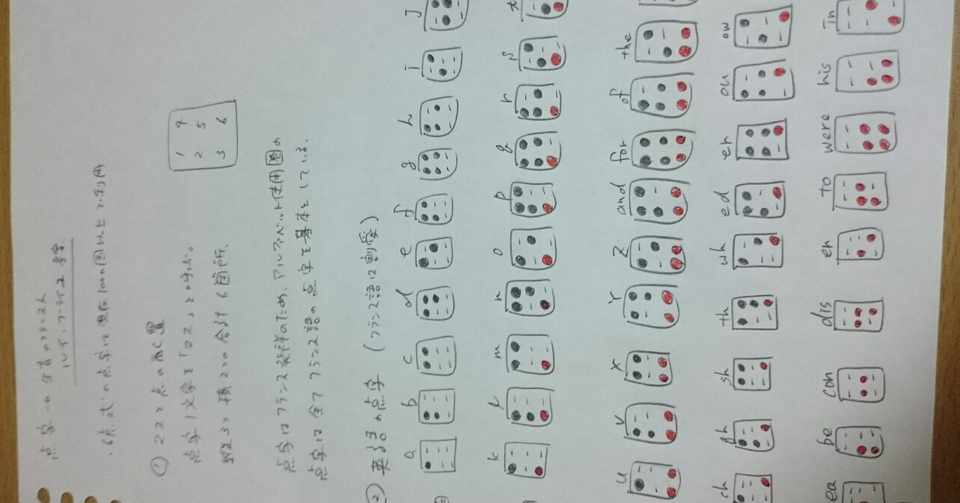 ルイ・ブライユ
・6点式の点字は現在100ヶ国以上で利用
① マスと点の配置
点字1文字を「マス」と呼ぶ。
縦3つ 横2つの合計6箇所。
1 4
2 5
3 6
点字はフランス発祥のため、アルファベット使用圏の
点字は全てフランス語の点字を基本としている。
② 英語の点字 (フランス語は割愛)
a b c d e f g h i j
k l m n o p q r s t
u v x y z and for of the
ch gh sh th wh ed er ou ow
ea be con dis en to were his in